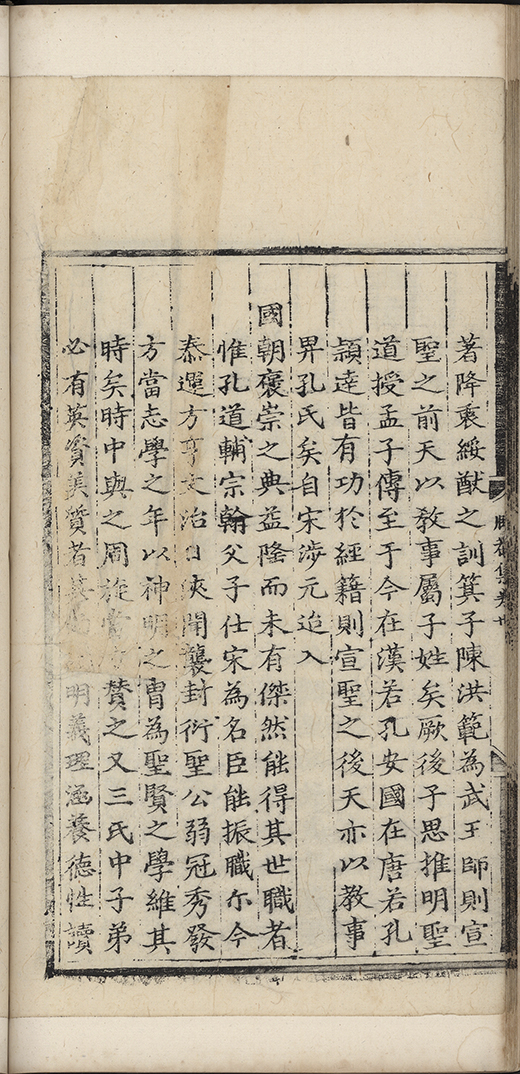 著降衷綏猷之訓箕子陳洪範為武王師則宣
聖之前天以敎事屬子姓矣厥後子思推明聖
道授孟子傳至于今在漢若孔安國在唐若孔
頴逹皆有功於經籍則宣聖之後天亦以敎事
畀孔氏矣自宋涉元迨入
國朝襃崇之典益隆而未有傑然能得其世職者
惟孔道輔宗翰父子仕宋為名臣能振職尓今
泰運方亨文治日洽聞襲封衍聖公弱冠秀發
方當志學之年以神明之胄為聖賢之學維其
時矣時中與之周旋賛之又三氏中子弟
必有英資美質者其明義理涵養德性讀